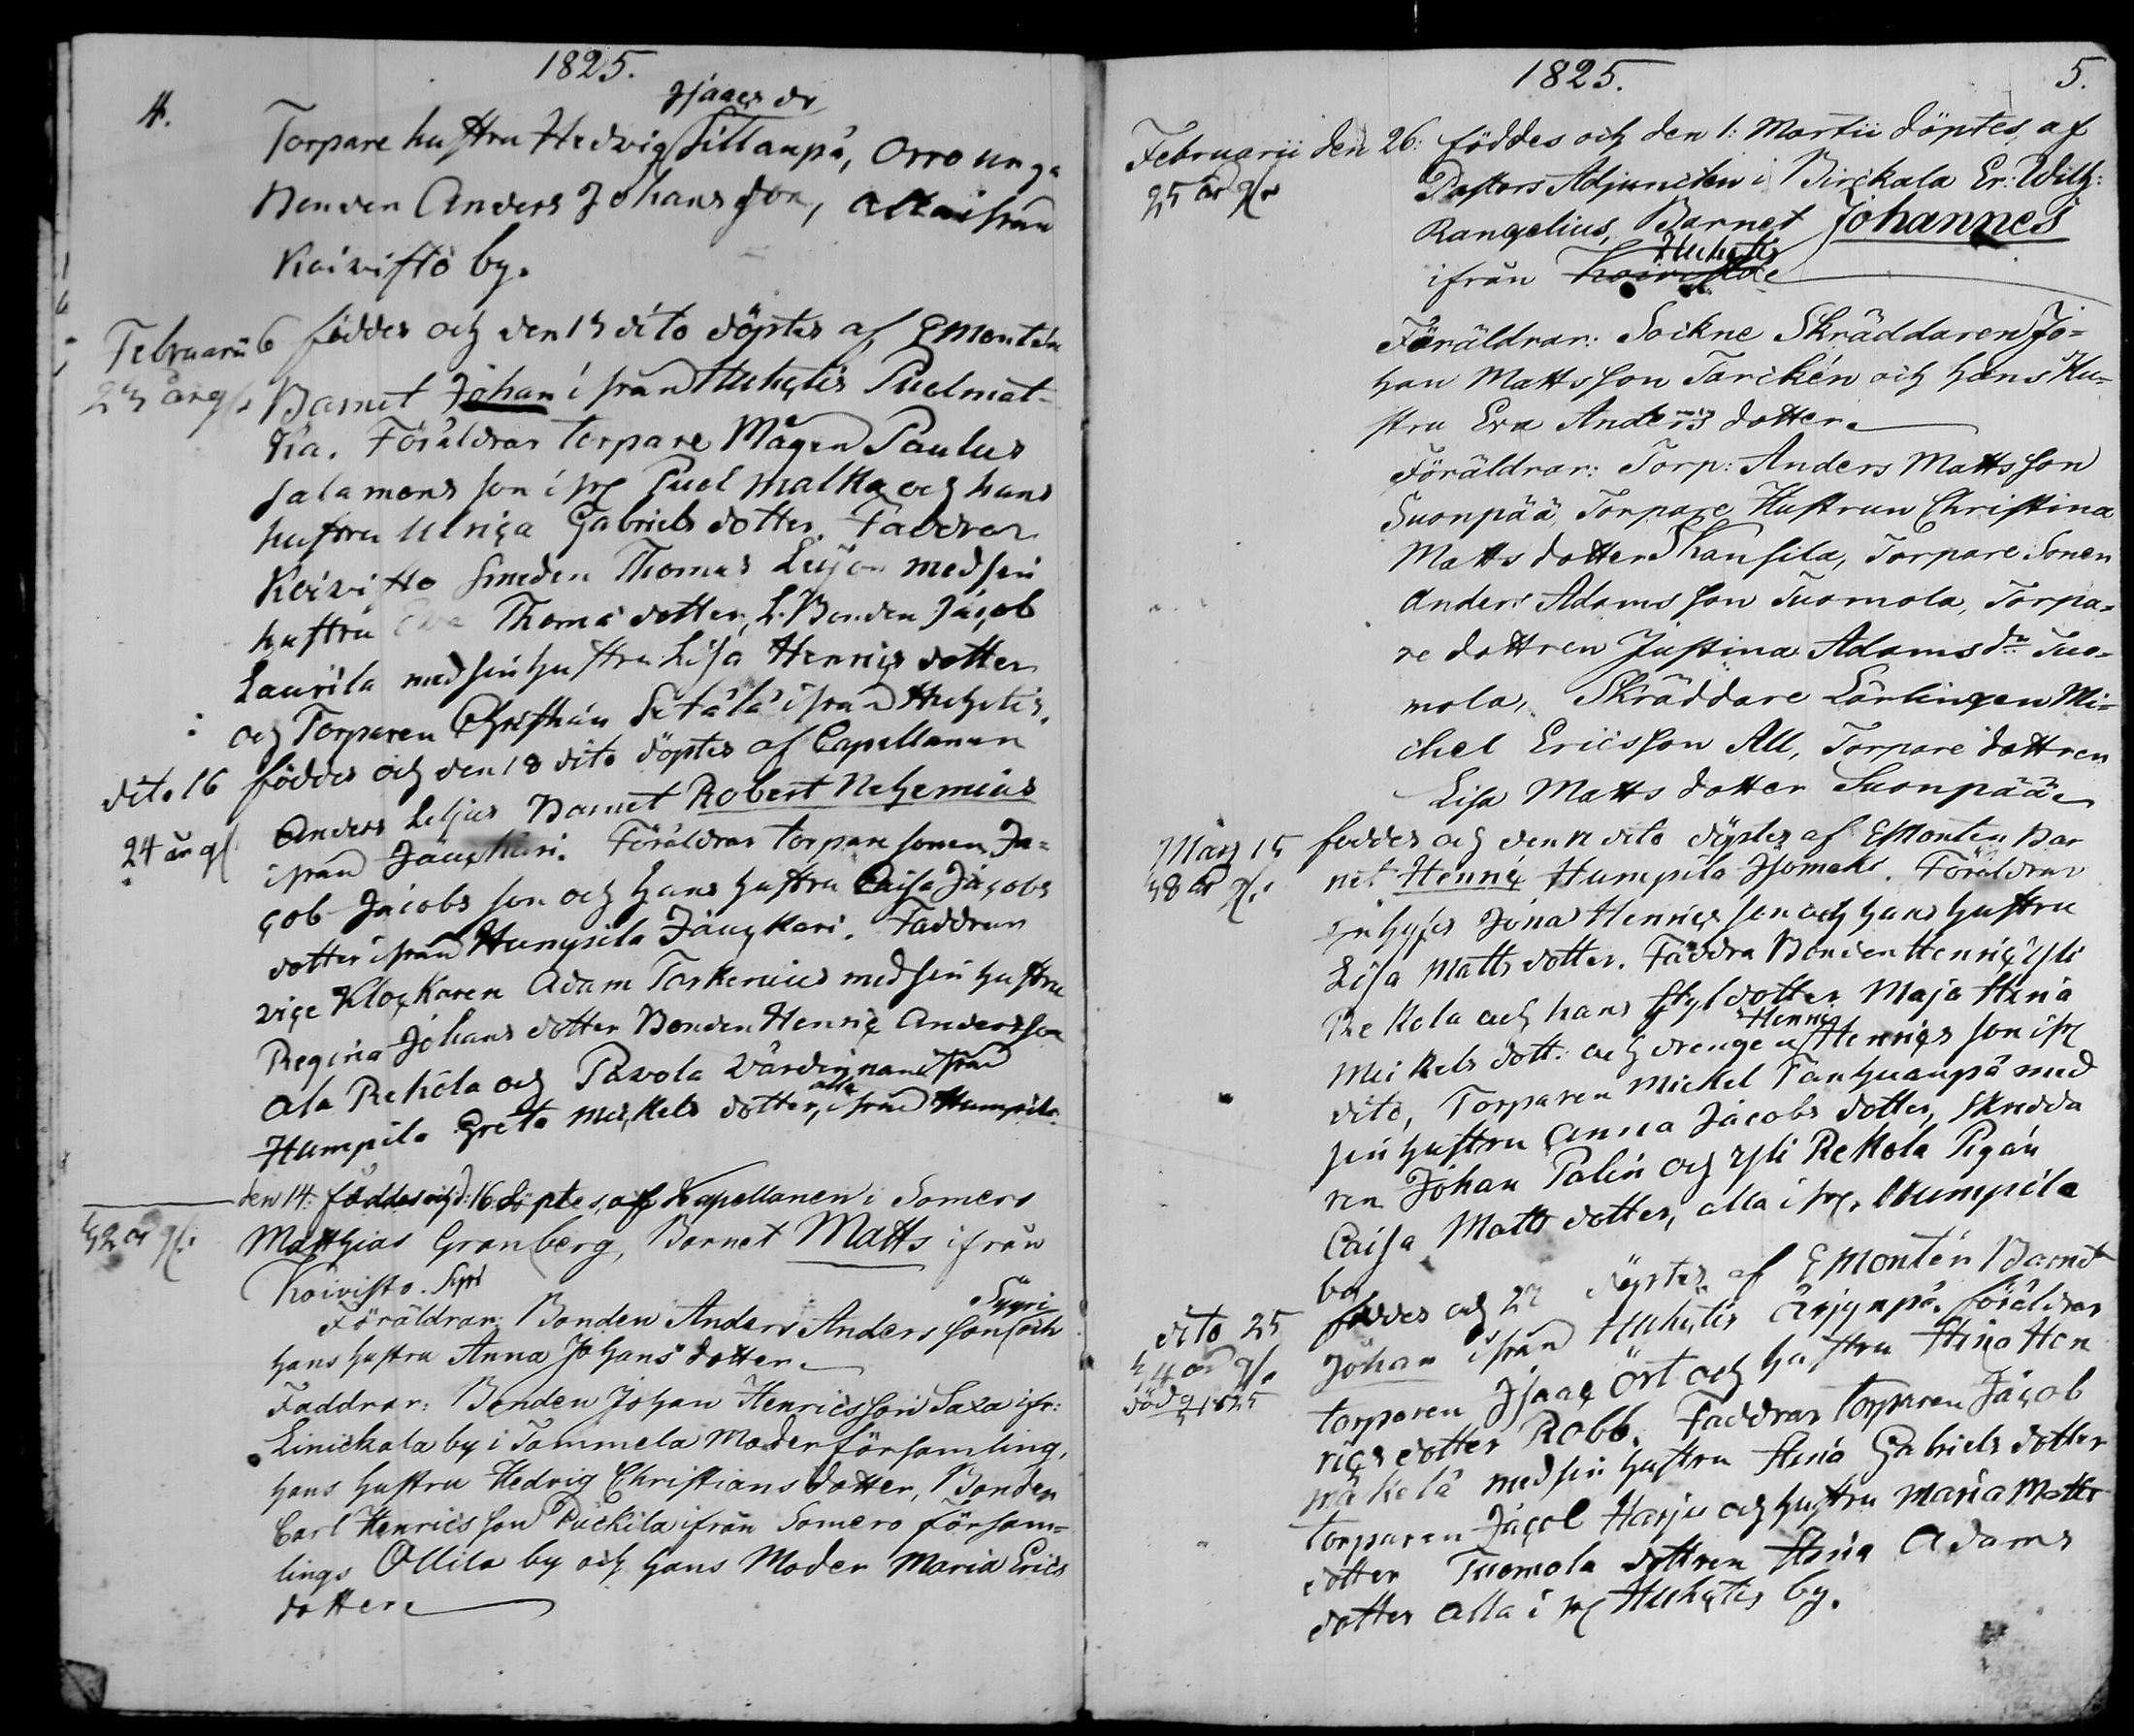 1825.
4.
Isaacs dr
Torpare hustru Hedwig Sillanpä, Orro unga
Bonden Anders Johansson, alla ifrån
Koivisto by.
Februarii 6 föddes och den 13 dito döptes af E Montén
23 år gl. Barnet Johan ifrån Huhtis Puolmat-
ka. Föräldrar torpare Mågen Paulus
Salamons son i fr Puol matka och hans
hustru Ulrica Gabriels dotter. Faddrar
Koivisto Smeden Thomas med sin
hustru Eva Thomæ dotter, L. Bonden Jacob
Laurila med sin hustru Lisa Henrics dotter
och Torparen Christian Setälä ifrån Huhtis.
dito 16 föddes och den 18 dito döptes af Capellanen
24 år gl. Anders Liljus Barnet Robert Nehemias
ifrån Jänhkäri. Föräldrar torpare sonen Ja-
cob Jacobs son och hans hustru Caisa Jacobs
dotter ifrån Humpila Jänhkäri. Faddrar
vice Klockaren Adam Torkenius med sin hustru
Regina Johans dotter Bonden Henric Andersson
Ala Rekola och Pavola Värdinnan ifrån
Humpila Greta Mickels dotter, alla ifrån Humpila.
den 14: föddes och d: 16 döptes, af Kapellanen i Somero
42 år gl. Matthias Granberg, Barnet Matts ifrån
Koivisto. Syri
Föräldrar: Bonden Anders Anders son Syyri och
hans hustru Anna Johans dotter.
Faddrar: Bonden Johan Henricsson Saxa ifr:
Linickala by i Tammela Moderförsamling,
hans hustru Hedvig Christians dotter, Bonden
Carl Henrics son Puckila ifrån Somero försam-
lings Ollila by och hans Moder Maria Erics
dotter
1825. 5.
Februarii den 26: föddes och den 1: Martii döptes, af
25 år gl. Pastors Adjuncten i Birckala Er: Wilh:
Rangelius, Barnet Johannes
ifrån Koivistoe Huhtis
Föräldrar: Sockne Skräddaren Jo-
han Mattsson Tarckén och hans Hu-
stru Eva Anders dotter.
Föräldrar: Torp: Anders Mattsson
Suonpää, Torpare Hustrun Christina
Matts dotter Kansila, Torpare Sonen
Anders Adams son Tuomola, Torpa-
re dottren Justina Adams dr Tuo-
mola, Skräddare Lärlingen Mi-
chel Ericsson All, Torpare dottren
Lisa Matts dotter Suonpää
Mars 15 föddes och den dito döptes af E Montén Bar
38 år gl. net Henric Humpila Isomäki. Föräldrar
Inhyses Jona Henrics son och hans hustru
Lisa Matts dotter. Faddra Bonden Henric Yli
Rekola och hans Styf dotter Maja Stina
Mickels dott: och drengen Henric Henrics son ifr
dito, Torparen Mickel Tanhuanpä med
sin hustru Anna Jacobs dotter, Skredda
ren Johan Palin och Yli Rekola Pigan
Caisa Matts dotter, alla i fr. Humpila
by
dito 25 föddes och 27 döptes af E Montén Barnet
34 år gl. Johan ifrån Huhtis Ärjynpä. föräldrar
död 1825 torparen Isaac Ört och hustru Stina Hen
rics dotter Robb. Faddrar torparen Jacob
Mäkelä med sin hustru Stina Gabriels dotter
torparen Jacob Harju och hustru Maria Matts
dotter Tuomola dottren Stina Adams
dotter alla i fr Huhtis by.